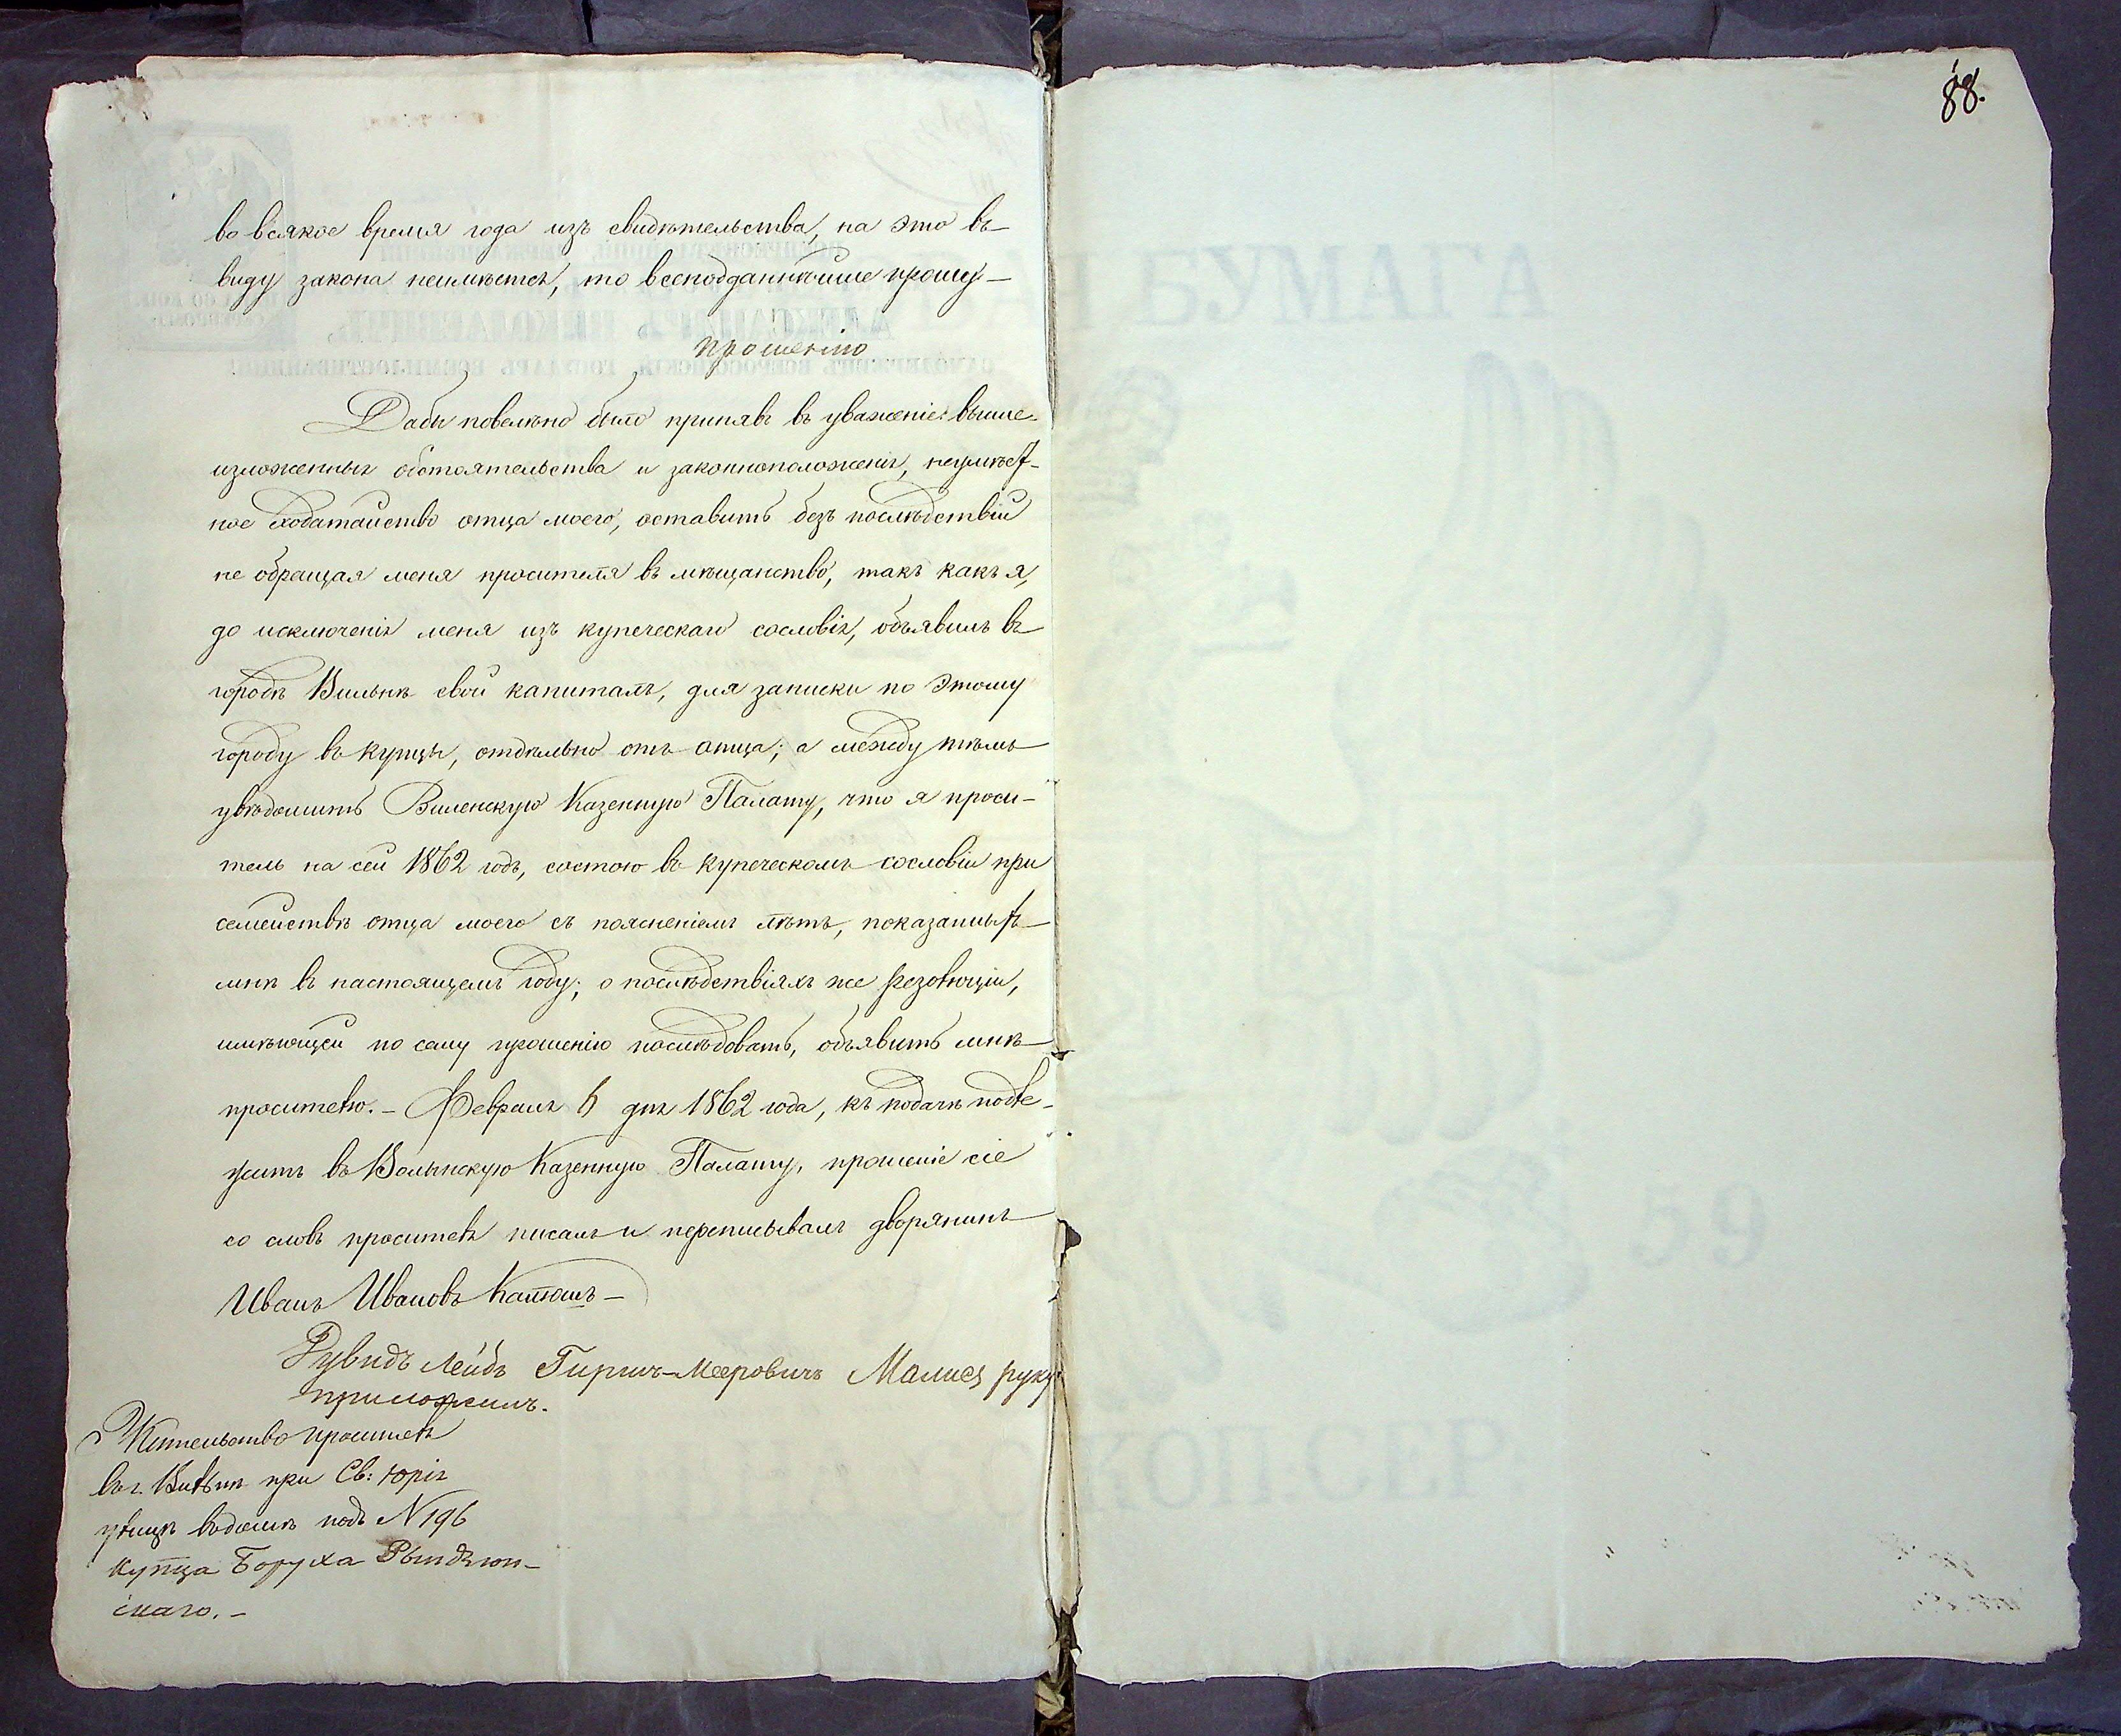 88.
во всякое время года изъ свидѣтельства, на это въ
виду закона неимѣется, то всеподданнѣйше прошу —
прошенiю
Дабы повелѣно было принявъ въ уваженiе: выше-
изложенныя обстоятельства и законноположенiя, неумѣст-
ное ходатайство отца моего, оставить безъ послѣдствiй
не обращая меня просителя въ мѣщанство, такъ какъ я,
до исключенiя меня изъ купеческаго сословiя, объявилъ въ
городѣ Вильнѣ свой капиталъ, для записки по этому
городу въ купцы, отдѣльно отъ отца; а между тѣмъ
увѣдомить Виленскую Казенную Палату, что я проси-
тель на сей 1862 годъ, состою въ купеческомъ сословiи при
семействѣ отца моего съ поясненiемъ лѣтъ, показанныхъ
мнѣ въ настоящемъ году; о послѣдствiяхъ же резолюцiи,
имѣющей по сему прошенiю послѣдовать, объявить мнѣ
просителю. — Февраля 6 дня 1862 года, къ подачѣ подле-
житъ въ Волынскую Казенную Палату, прошенiе сiе
со словъ просителя писалъ и переписывалъ дворянинъ
Иванъ Ивановъ
Рувидъ Лейбъ Гиршъ-Мееровичъ Малисъ руку
приложилъ.
Жительство просителя
въ г. Вильнѣ при Св: Юрiя
улицѣ въ домѣ подъ N 196
купца Боруха Рындзюн-
скаго. —